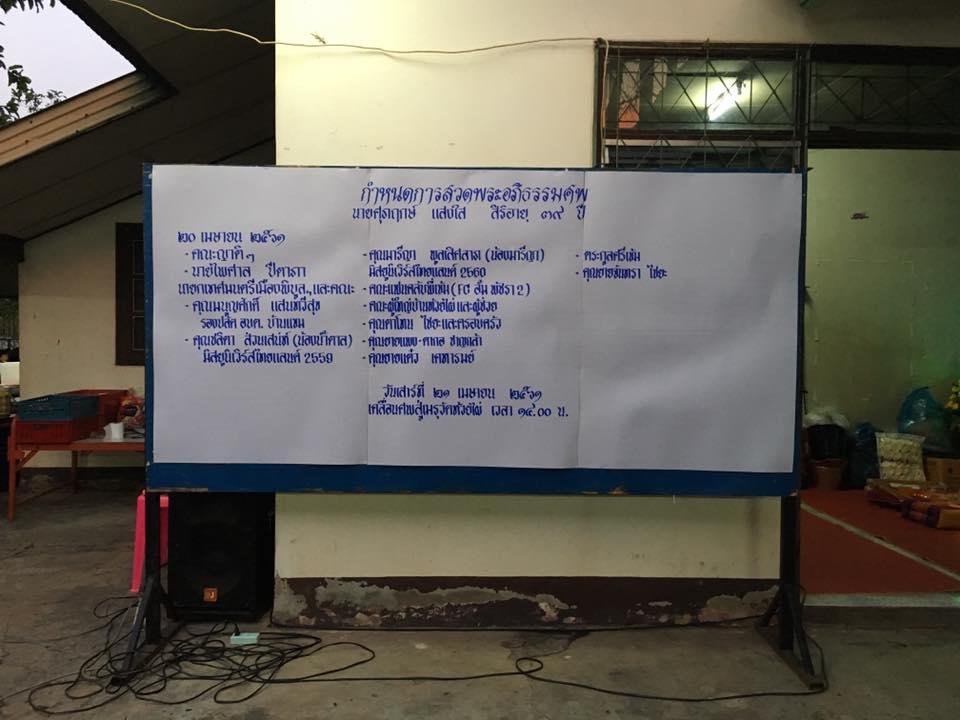 กำหนดการสวดพระอภิธรรมศพ
นายศุภฤกษ์ แสงใส สิริอายุ ๓๙ ปี
๒๐ เมษายน ๒๕๖๑
- คณะญาติๆ
- นายไพศาล ปีตาภา
นายกเทศมนตรีเมืองพิบูลฯ และคณะ
- คุณมนูญศักดิ์ แสนทวีสุข
รองปลัด อบต. บ้านแขม
- คุณชลิตา ส่วนเสน่ห์ (น้องน้ำตาล)
มิสยูนิเวิร์สไทยแลนด์ 2559
- คุณมารีญา พูลเลิศลาภ (น้องมารีญา)
มิสยูนิเวิร์สไทยแลนด์ 2560
- คณะแฟนคลับพี่เข้ม (FC อั้ม พัชรา 2)
- คณะผู้ใหญ่บ้านห้วยไผ่ และผู้ช่วย
- คุณตาโทน ไชยะและครอบครัว
- คุณยายแต๋ว
วันเสาร์ที่ ๒๑ เมษายน ๒๕๖๑
เคลื่อนศพสู่เมรุวัดห้วยไผ่ เวลา ๑๔.๐๐ น.
- ตระกูลศรีเข้ม
- คุณยายจันทรา ไชยะ